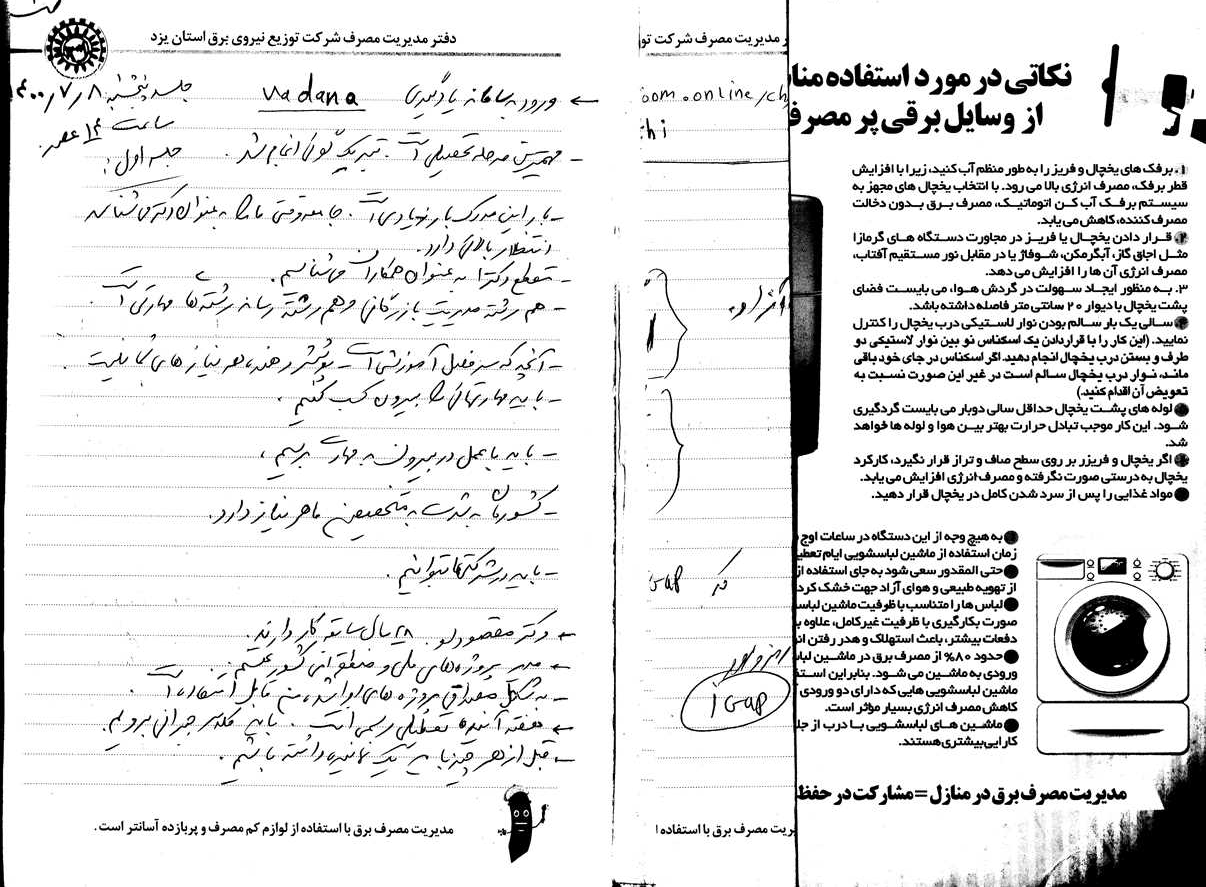 دفتر مدیریت مصرف شرکت توزیع نیروی برق استان یزد
جلسه پنجشنبه ۱۴۰۰/۷/۸
ساعت ۱۴ عصر
← ورود به سامانه یادگیری Vadana
جلسه اول:
- مهمترین مرحله تحصیلی است. تبریک گوئی انجام شد.
- بار این مدرک بار زیادی است. جامعه وقتی ما را به عنوان دکتر می شناسد
انتظار بالائی دارد.
- مقطع دکترا به عنوان همکاران می شناسیم.
- هم رشته مدیریت بازرگانی و هم رشته رسانه رشته ها مهارتی است.
- آنچه که سرفصل آموزشی است پوشش دهنده همه نیازهای شما نیست.
- باید مهارتهائی را بیرون کسب کنیم.
- باید با عمل در بیرون به مهارت برسیم.
- کشورمان به شدت به متخصصین ماهر نیاز دارد.
- باید در شرکتها بتوانیم.
← دکتر مقصودلو. ۲۸ سال سابقه کار دارند.
← مدیر پروژه های ملی و منطقه ای کشور
هفته آینده تعطیلی رسمی است. باید کلاس جبرانی برویم.
← قبل از هر چیز باید یک نماینده داشته باشیم.
مدیریت مصرف برق با استفاده از لوازم کم مصرف و پربازده آسانتر است.
ر مدیریت مصرف شرکت تو
oom.online/ch
hi
که gap
iGap
یریت مصرف برق با استفاده ا
نکاتی در مورد استفاده منا
از وسایل برقی پر مصرف
۱. برفک های یخچال و فریز را به طور منظم آب کنید، زیرا با افزایش
قطر برفک، مصرف انرژی بالا می رود. با انتخاب یخچال های مجهز به
سیستم برفک آب کن اتوماتیک، مصرف برق بدون دخالت
مصرف کننده، کاهش می یابد.
۲. قرار دادن یخچال یا فریز در مجاورت دستگاه های گرمازا
مثل اجاق گاز، آبگرمکن، شوفاژ یا در مقابل نور مستقیم آفتاب،
مصرف انرژی آن ها را افزایش می دهد.
۳. به منظور ایجاد سهولت در گردش هوا، می بایست فضای
پشت یخچال با دیوار ۲۰ سانتی متر فاصله داشته باشد.
سالی یک بار سالم بودن نوار لاستیکی درب یخچال را کنترل
نمایید. (این کار را با قراردادن یک اسکناس نو بین نوار لاستیکی دو
طرف و بستن درب یخچال انجام دهید. اگر اسکناس در جای خود باقی
ماند، نوار درب یخچال سالم است در غیر این صورت نسبت به
تعویض آن اقدام کنید.)
لوله های پشت یخچال حداقل سالی دوبار می بایست گردگیری
شود. این کار موجب تبادل حرارت بهتر بین هوا و لوله ها خواهد
شد.
اگر یخچال و فریزر بر روی سطح صاف و تراز قرار نگیرد، کارکرد
یخچال به درستی صورت نگرفته و مصرف انرژی افزایش می یابد.
مواد غذایی را پس از سرد شدن کامل در یخچال قرار دهید.
به هیچ وجه از این دستگاه در ساعات اوج
زمان استفاده از ماشین لباسشویی ایام تعطیل
حتی المقدور سعی شود به جای استفاده از
از تهویه طبیعی و هوای آزاد جهت خشک کرد
لباس ها را متناسب با ظرفیت ماشین لباس
صورت بکارگیری با ظرفیت غیرکامل، علاوه ب
دفعات بیشتر، باعث استهلاک و هدر رفتن ان
حدود ۸۰% از مصرف برق در ماشین لباس
ورودی به ماشین می شود. بنابراین است
ماشین لباسشویی هایی که دارای دو ورودی
کاهش مصرف انرژی بسیار مؤثر است.
ماشین های لباسشویی با درب از جل
کارایی بیشتری هستند.
مدیریت مصرف برق در منازل = مشارکت در حفظ